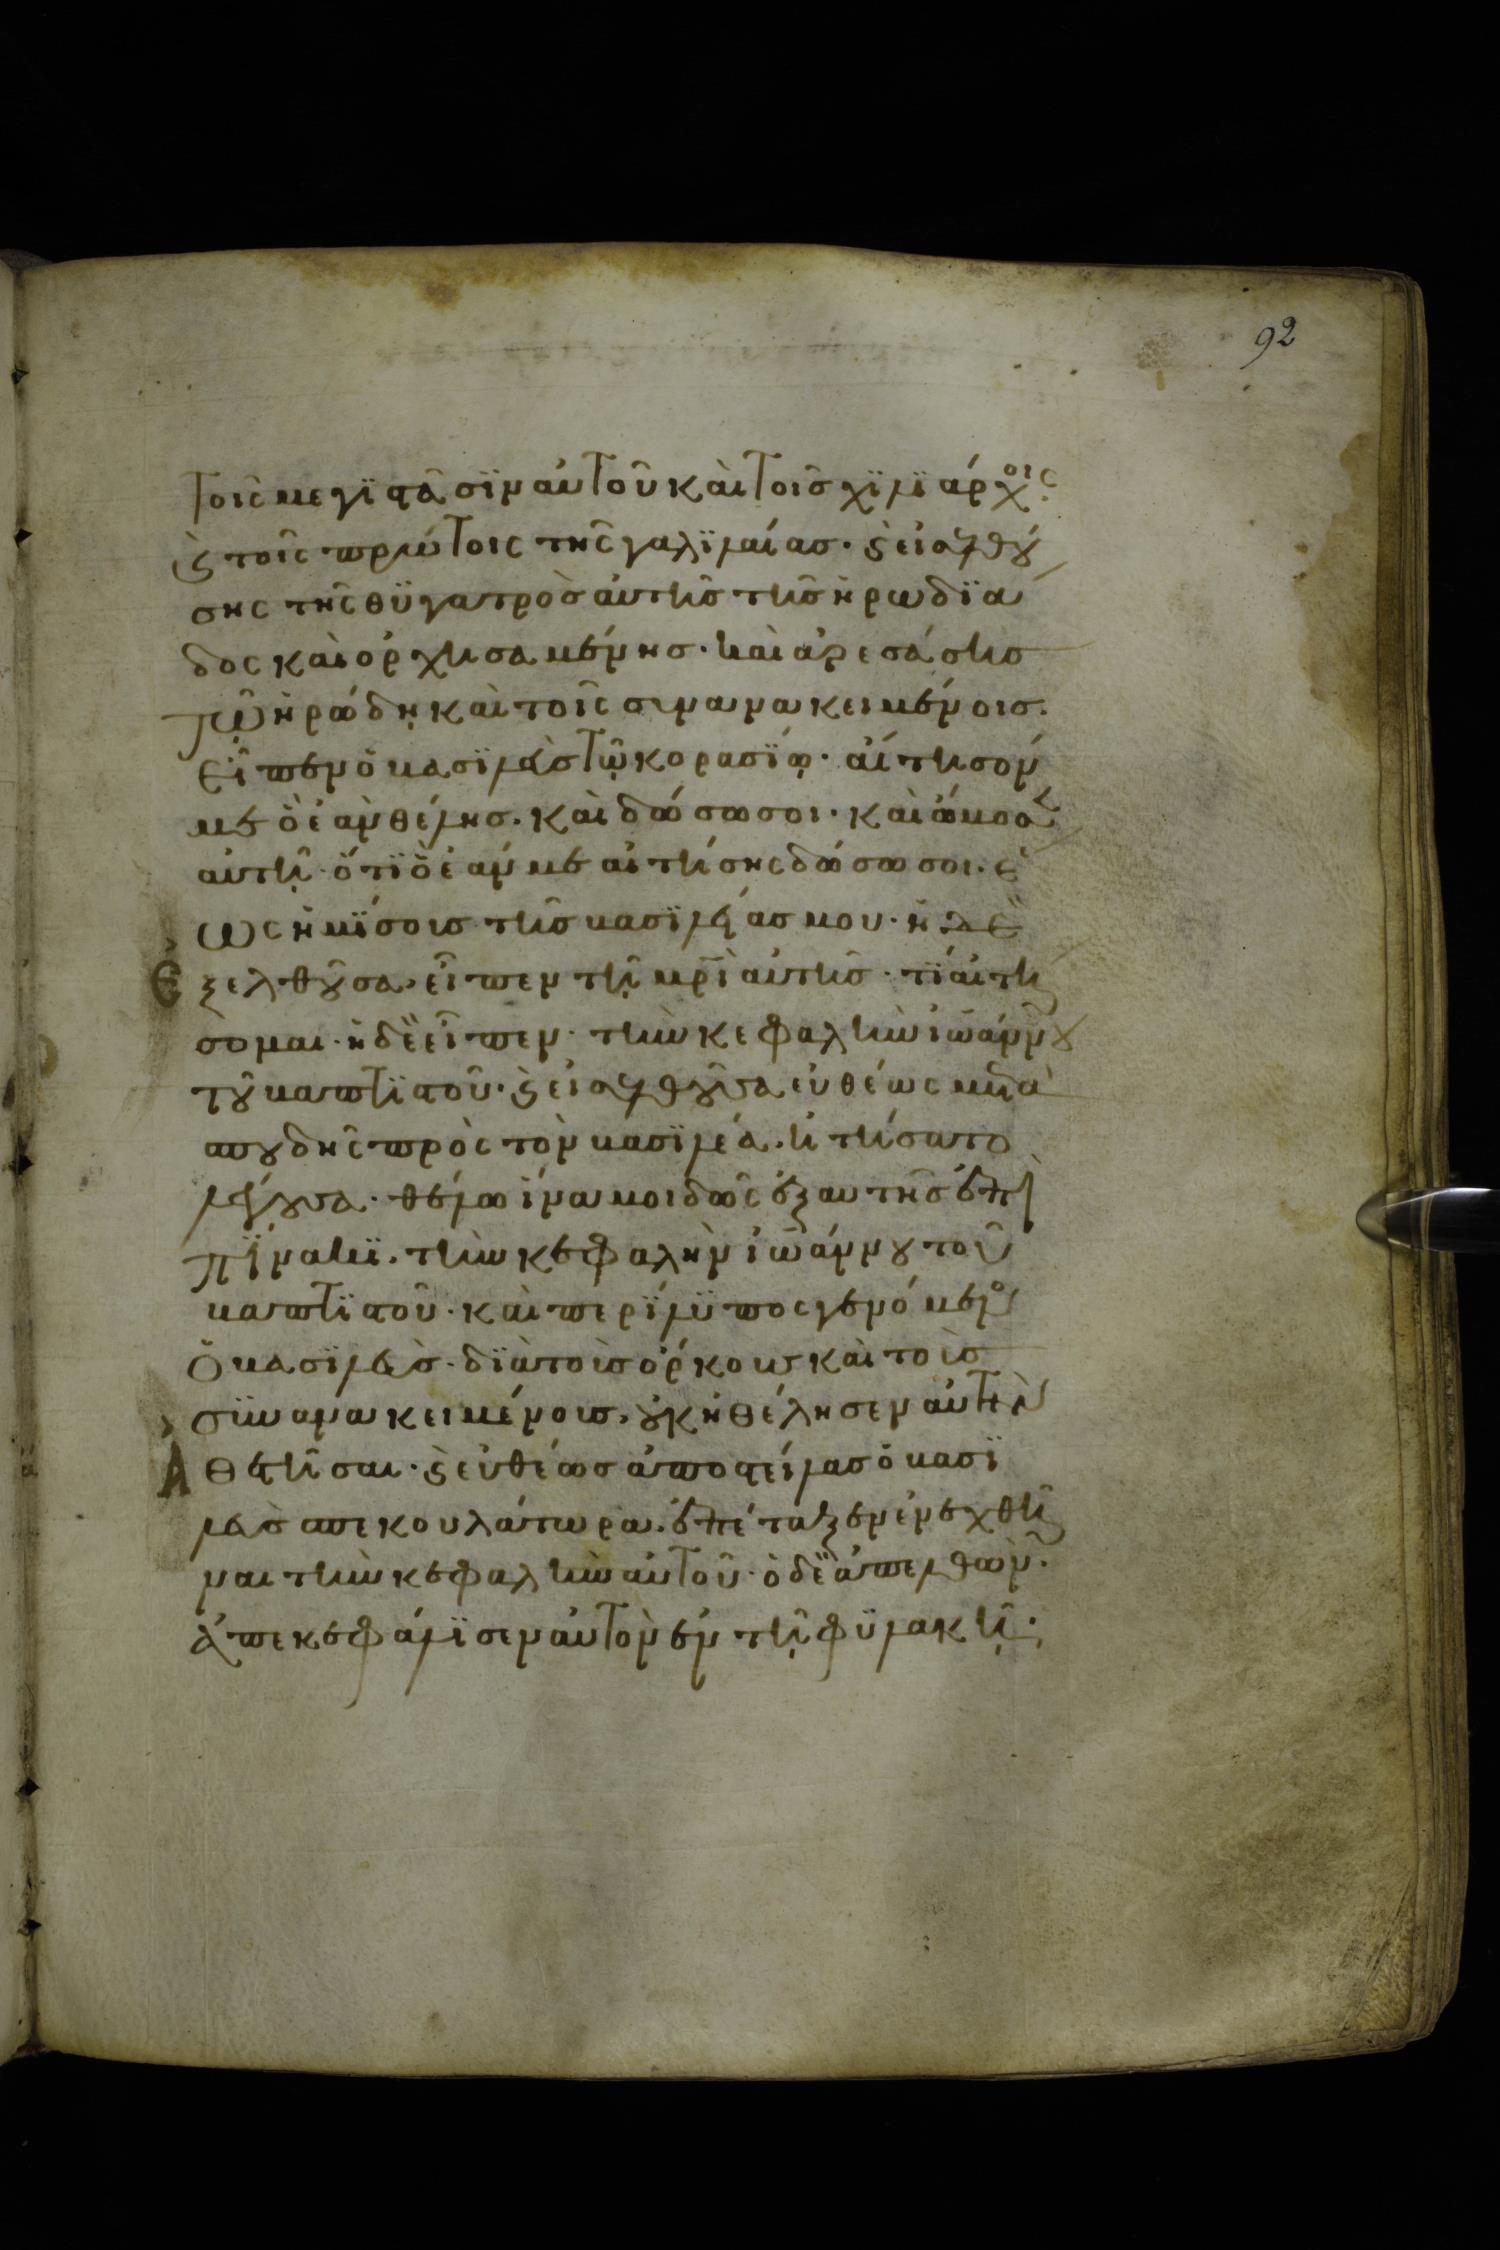 92
τοῖς μεγϊστᾶσϊν αὐτοῦ καὶ τοῖσ χϊλϊάρχοις
ϛ τοῖς πρώτοις τῆς γαλϊλαίασ· ϛ εἰσελθού
σης τῆς θϋγατρὸσ αὐτῆσ τῆσ ἡρωδϊά
δος καὶ ὀρχησαμένησ· καὶ ἀρεσάσησ
τῶ ἡρώδη καὶ τοῖς συνανακειμένοισ·
εἶπεν ὁ βασϊλεὺσ τῶ κορασϊω· αἴτησόν
με ὃ ἐὰν θέλησ· καὶ δώσω σοι· καὶ ὤμοσεν
αὐτῆ· ὅτϊ ὃ ἐάν με αἰτήσης δώσω σοι· ἕ
ως ἡμϊσοισ τῆσ βασϊλείασ μου· ἡ δὲ
ἐξελθοῦσα· εἶπεν τῆ μρὶ αὐτῆσ· τϊ αἰτή
σομαι· ἡ δὲ εἶπεν· τὴν κεφαλὴν ἰωάννου
τοῦ βαπτϊστοῦ· ϛ εἰσελθοῦσα εὐθέως μετὰ
σπουδῆς πρὸς τὸν βασϊλέα· ἠτήσατο
λέγουσα· θέλω ἵνα μοι δῶς ἐξαυτῆσ ἐπὶ
πϊνακϊ· τὴν κεφαλὴν ἰωάννου τοῦ
βαπτϊστοῦ· καὶ περϊλϋπος γενόμενος
ὁ βασϊλεὺσ· δϊὰ τοὺσ ὅρκουσ καὶ τοὺσ
σϋνανακειμένουσ· οὐκ ἠθέλησεν αὐτὴν
ἀθετῆσαι· ϛ εὐθέωσ ἀποστείλασ ὁ βασϊ
λεὺσ σπεκουλάτωρα· ἐπέταξεν ἐνεχθῆ
ναι τὴν κεφαλὴν αὐτοῦ· ὁ δὲ ἀπελθὼν·
ἀπεκεφάλϊσεν αὐτὸν ἐν τῆ φϋλακῆ·